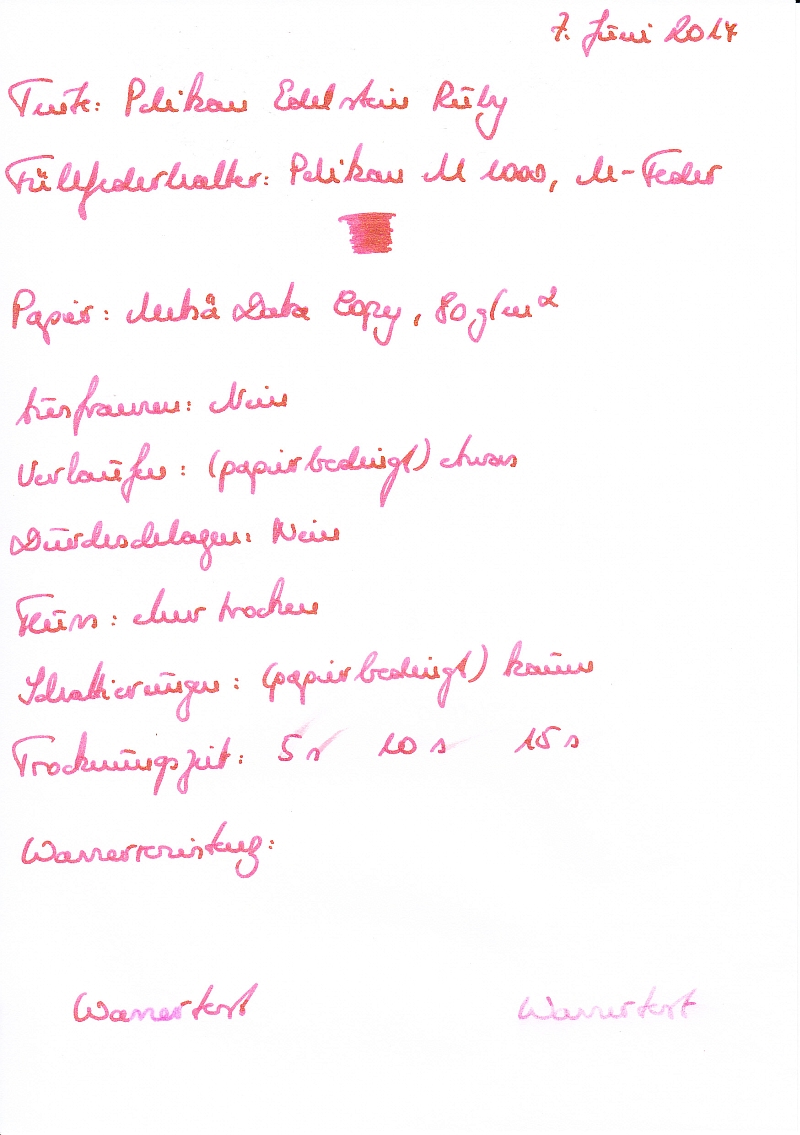 7. Juni 2017
Tinte: Pelikan Edelstein Ruby
Füllfederhalter: Pelikan M 1000, M-Feder
Papier: Metsä Data Copy, 80 g/m²
Ausfransen: Nein
Verlaufen: (papierbedingt) etwas
Durchschlagen: Nein
Fluss: eher trocken
Schattierungen: (papierbedingt) kaum
Trocknungszeit: 5 s 10 s 15 s
Wasserresistenz:
Wassertest Wassertest